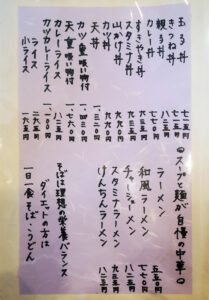 玉子丼 七一五円
きつね丼 七一五円
親子丼 八二五円
カレー丼 八二五円
すきやき丼 九三五円
スタミナ丼 九三五円
山かけ丼 九九〇円
カツ丼 九九〇円
天丼 一、三二〇円
カツ重 吸い物付 一、四三〇円
天重 吸い物付 一、七六〇円
カレーライス 八二五円
カツカレーライス 一、一〇〇円
ライス 二七五円
小ライス 一六五円
◎スープと麺が自慢の中華◎
ラーメン 五五〇円
和風ラーメン 七七〇円
チャーシューメン 八二五円
スタミナラーメン 九三五円
けんちんラーメン 八二五円
そばは理想の栄養バランス
ダイエットの方は
一日一食そば・うどん